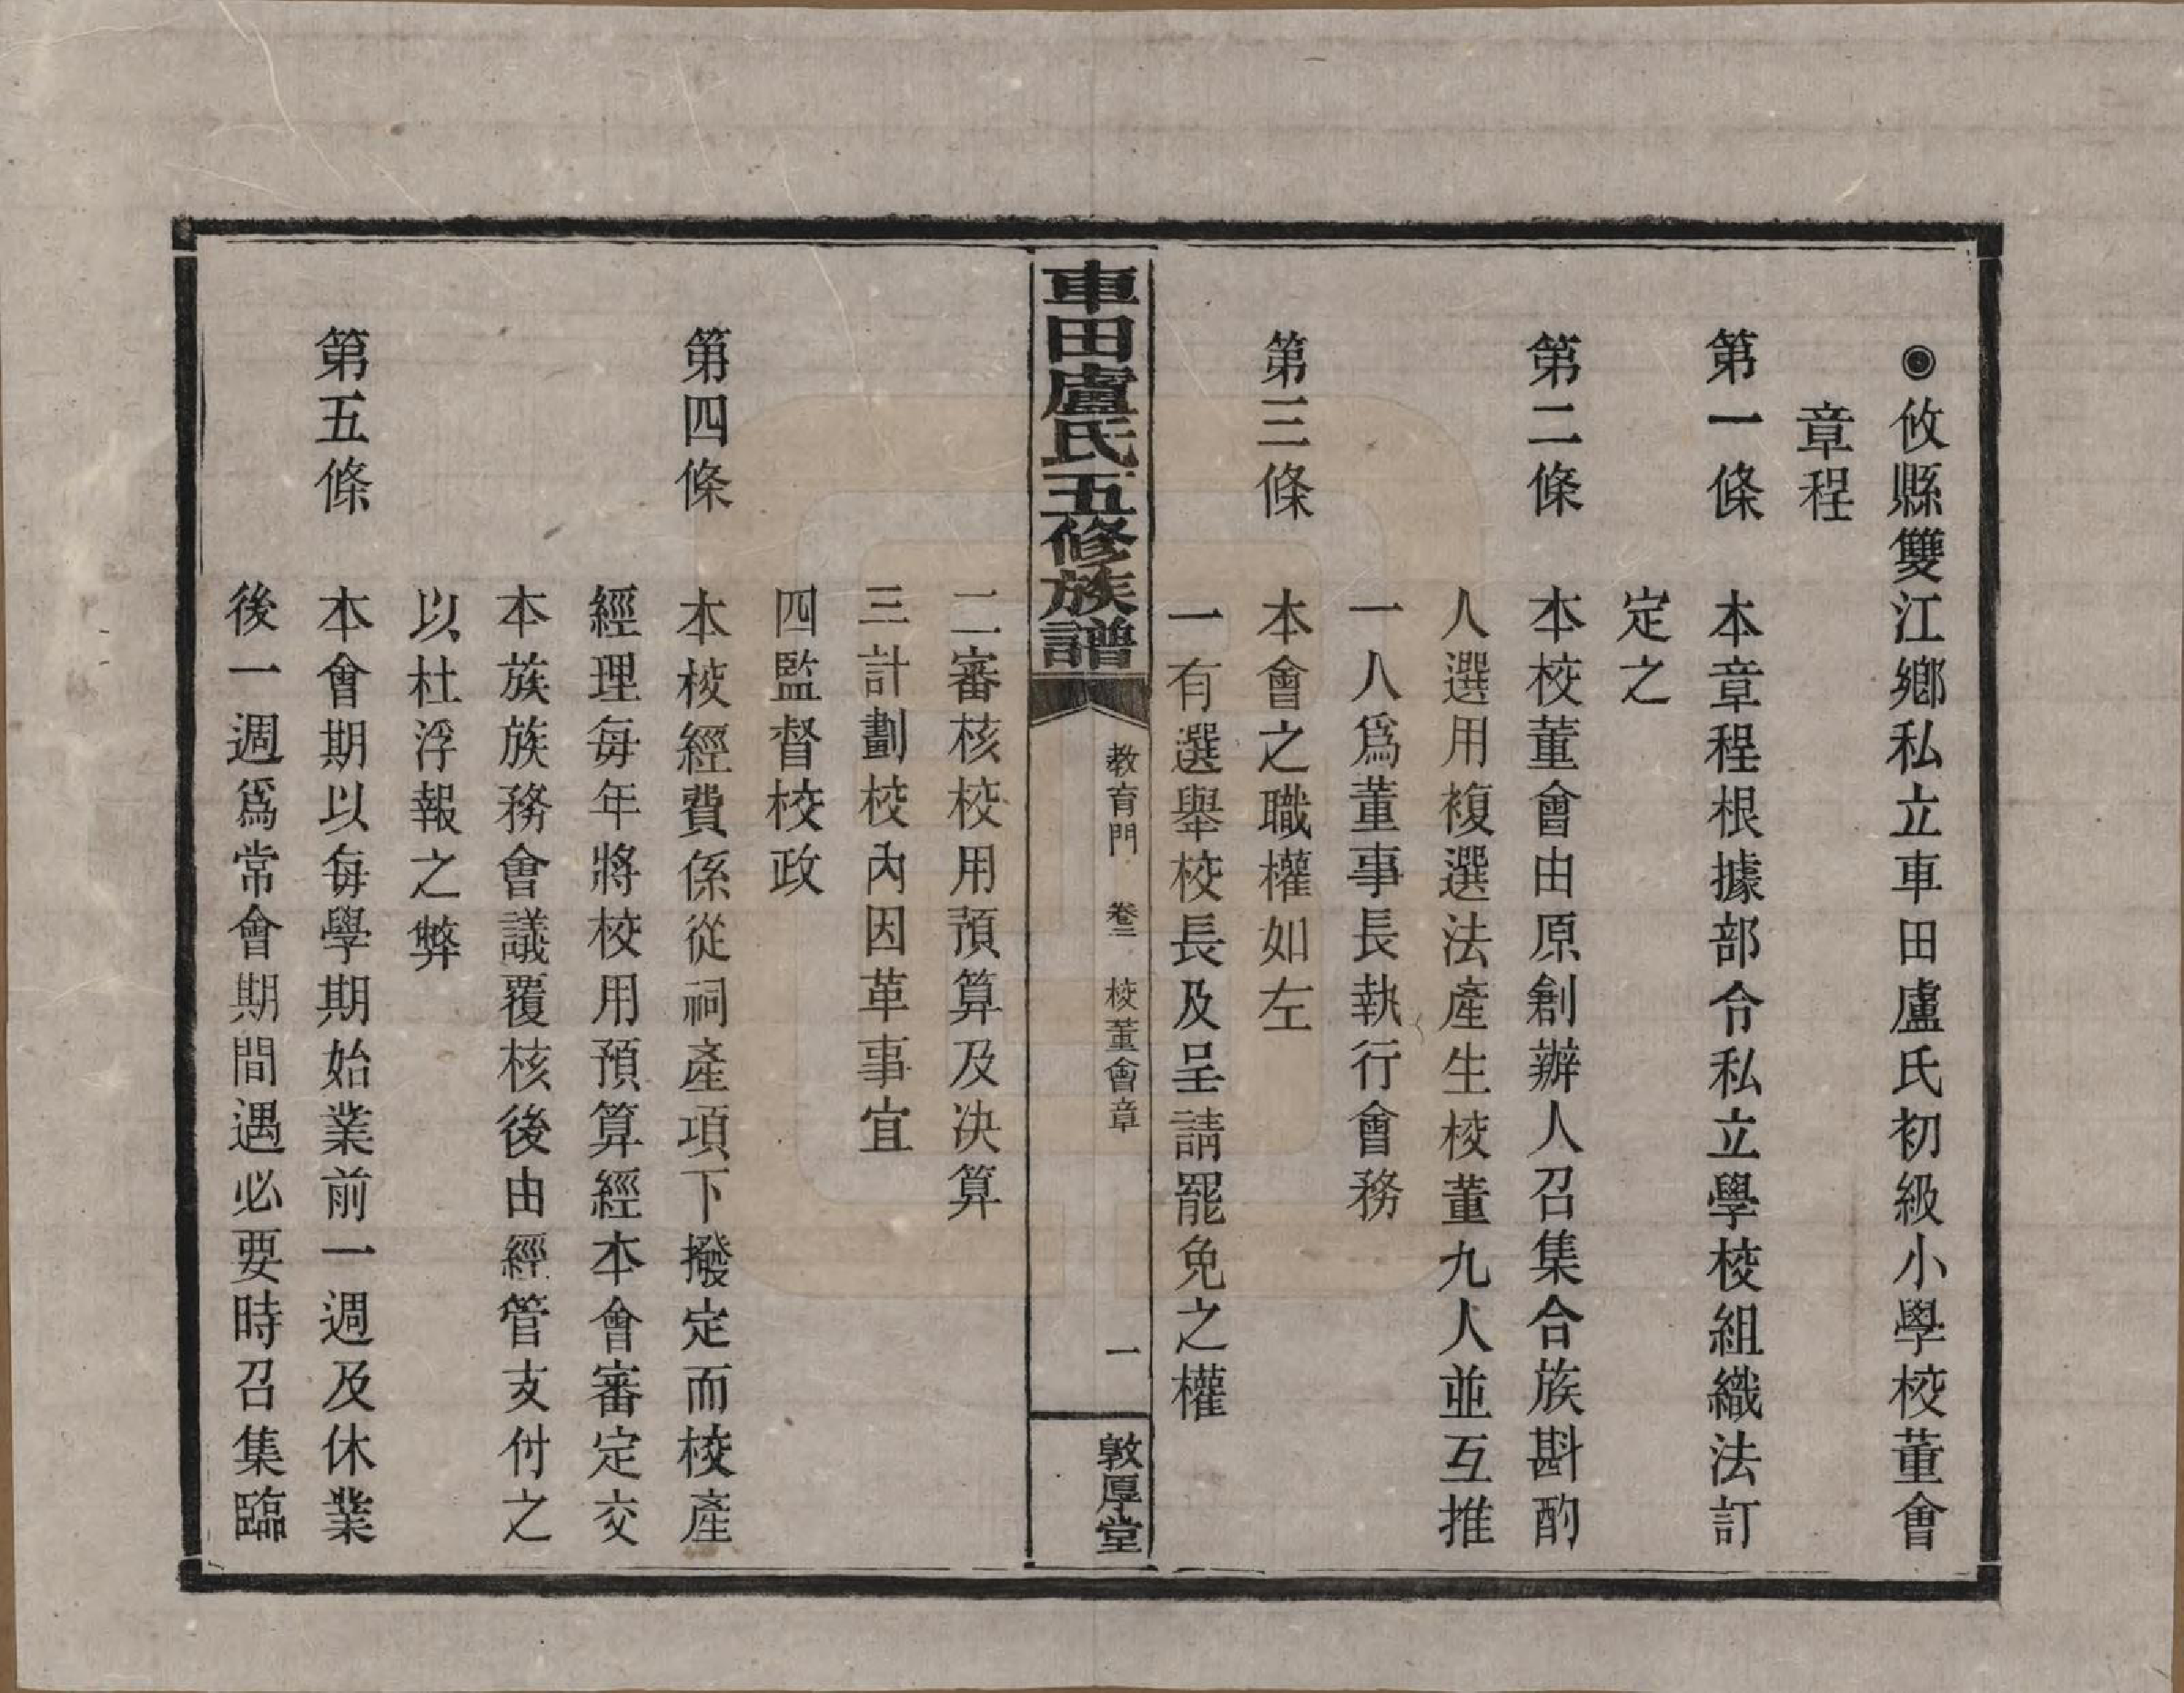 ◉攸縣雙江鄉私立車田盧氏初級小學校董會
章程
第一條　本章程根據部令私立學校組織法訂
定之
第二條　本校董會由原創辦人召集合族斟酌
人選用複選法產生校董九人並互推
一人爲董事長執行會務
第三條　本會之職權如左
一有選舉校長及呈請罷免之權
車田盧氏五修族譜
教育門　卷三　校董會章
一
敦厚堂
二審核校用預算及决算
三計劃校內因革事宜
四監督校政
第四條　本校經費係從祠產項下撥定而校產
經理每年將校用預算經本會審定交
本族族務會議覆核後由經管支付之
以杜浮報之弊
第五條　本會期以每學期始業前一週及休業
後一週爲常會期間遇必要時召集臨